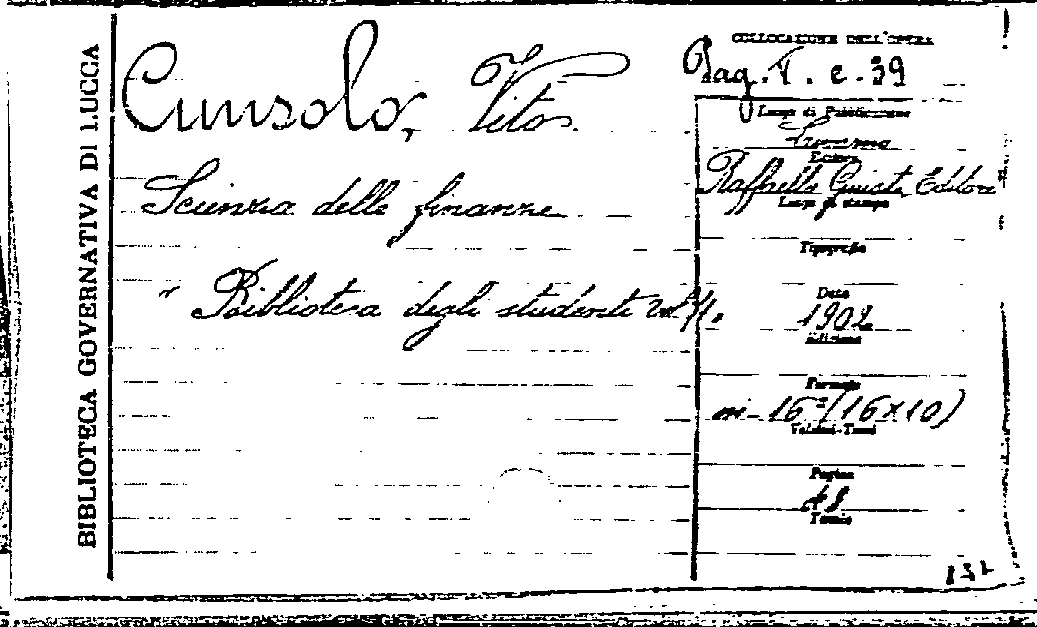 BIBLIOTECA GOVERNATIVA DI LUCCA
Cunsolo, Vito
Scienza delle finanze
" Biblioteca degli studenti vol.
COLLOCAZIONE DELL'OPERA
Bag. T. c. 39
Luogo di Pubblicazione
Editore
Raffaello Giusti Editore
Luogo di stampa
Tipografia
Data
1902
Edizione
Formato
in-16º (16x10)
Volumi-Tomi
Pagine
Tomio
132